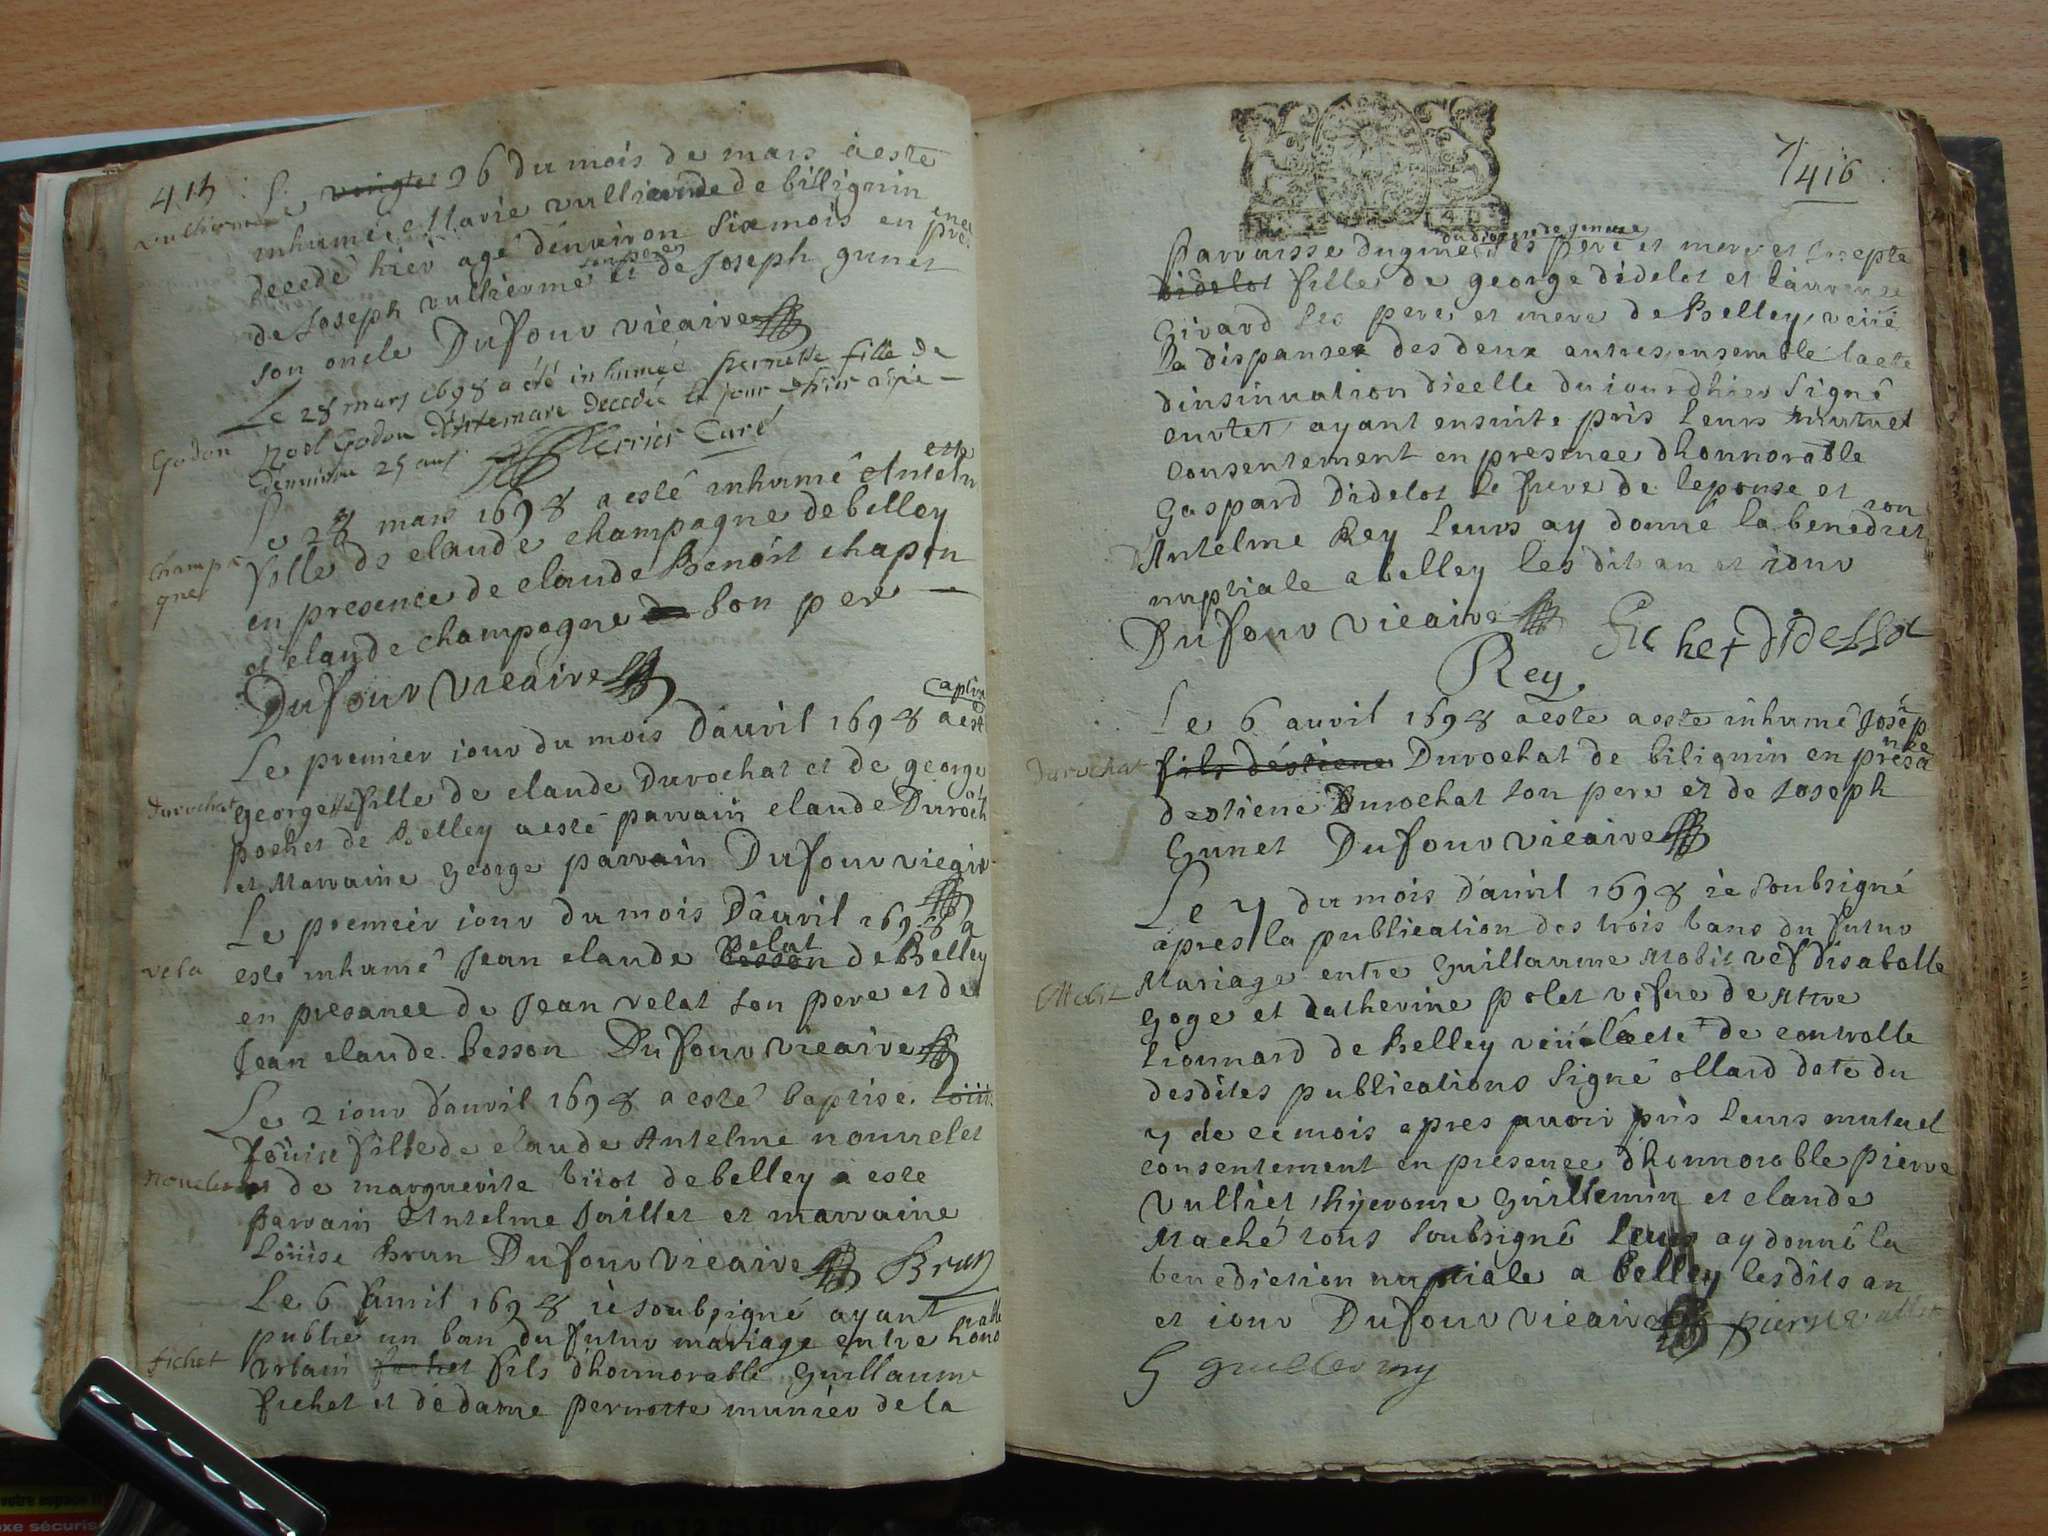 415
Le vingt 26 du mois de mars à este
vullierme
inhumée Marie vullierme de billignin
decedé hier agé denuiron six mois en presence
de Joseph vullierme son pere et de Joseph gunet
son oncle Dufour vicaire
Le 28 mars 1698 a été inhumée pernette fille de
Godon
noel Godon d'Artemare decedée le jour d'hier agée
denuiron 25 ans Perrier Curé
Le 28 mars 1698 a esté inhumé Antelme
fille de claude champagne de belley
champagne
en presence de claude Benoit chapon
et claude champagne son pere
Dufour vicaire
Le premier iour du mois d'auril 1698 a esté baptisé
Durochat
georgette fille de claude Durochat et de george
pochet de Belley a esté parrain claude Durochat
et Marraine george parrain Dufour vicaire
Le premier iour du mois d'auril 1698 a
vela
esté inhumé Jean claude Besson velat de Belley
en presance de Jean velat son pere et de
Jean claude besson Dufour vicaire
Le 2 iour d'auril 1698 a esté baptise Loüis
Loüise fille de claude Antelme nouvelet
nouvelet
et de marguerite biiot de belley a este
parrain Antelme Jaillet et marraine
Loüise Brun Dufour vicaire Brun
Le 6 Auril 1698 ie soubsigné ayant
publié un ban du futur mariage entre honorable
fichet
urbain fichet fils d'honnorable Guillaume
fichet et de dame pernette munier de la
416
Parroisse dugine du diocese de geneue ses pere et mere et Josepte
didelot fille de george didelot et laurence
Girard ses pere et mere de Belley, veüe
la dispanse des deux autres ensemble lacte
dinsinuation dicelle du iourdhier signé
ayant ensuite pris leurs mutuel
consentement en presence dhonnorable
Gaspard Didelot le frere de lepouse et son
Antelme Rey leurs ay donné la benediction
nuptiale a belley lesdits an et iour
Dufour vicaire Fichet didellot
Rey
Le 6 auril 1698 a este a este inhumé Joseph
Durochat
fils d'estiene Durochat de bilignin en presence
d'estiene Durochat son pere et de Joseph
Gunet Dufour vicaire
Le 7 du mois d'auril 1698 ie soubsigné
apres la publication des trois bans du futur
Mariage entre Guillaume Mobit vef disabelle
Mobit
goge et Catherine polet vefue de
Lionnard de Belley veüe lacte de controlle
desdites publications signé ollard date du
7 de ce mois apres auoir pris leurs mutuel
consentement en presence d'honnorable pierre
vulliet hyerome Guillemin et claude
Maché tous soubsigné Leurs ay donné la
benediction nuptiale a belley lesdits an
et iour Dufour vicaire pierre vulliet
G guillermy